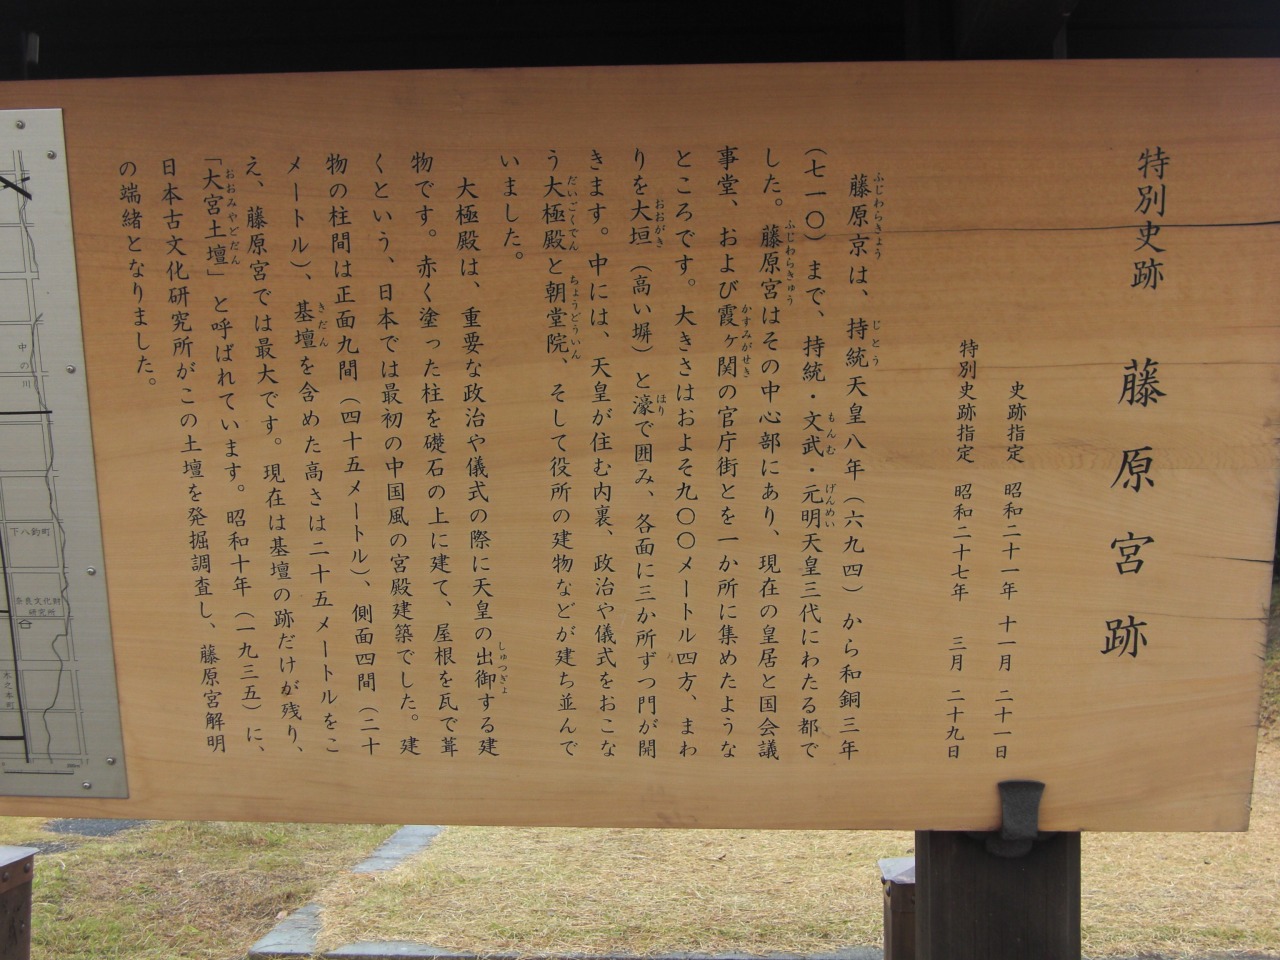 特別史跡 藤原宮跡
史跡指定 昭和二十一年 十一月 二十一日
特別史跡指定 昭和二十七年 三月 二十九日
藤原京は、持統天皇八年（六九四）から和銅三年
ふじわらきょう じとう
（七一〇）まで、持統・文武・元明天皇三代にわたる都で
もんむ げんめい
した。藤原宮はその中心部にあり、現在の皇居と国会議
ふじわらきゅう
事堂、および霞ヶ関の官庁街とを一か所に集めたような
かすみがせき
ところです。大きさはおよそ九〇〇メートル四方、まわ
りを大垣（高い塀）と濠で囲み、各面に三か所ずつ門が開
おおがき ほり
きます。中には、天皇が住む内裏、政治や儀式をおこな
う大極殿と朝堂院、そして役所の建物などが建ち並んで
だいごくでん ちょうどういん
いました。
大極殿は、重要な政治や儀式の際に天皇の出御する建
しゅつぎょ
物です。赤く塗った柱を礎石の上に建て、屋根を瓦で葺
くという、日本では最初の中国風の宮殿建築でした。建
物の柱間は正面九間（四十五メートル）、側面四間（二十
メートル）、基壇を含めた高さは二十五メートルをこ
きだん
え、藤原宮では最大です。現在は基壇の跡だけが残り、
「大宮土壇」と呼ばれています。昭和十年（一九三五）に、
おおみやどだん
日本古文化研究所がこの土壇を発掘調査し、藤原宮解明
の端緒となりました。
中の川
下八釣町
奈良文化財
研究所
木之本町